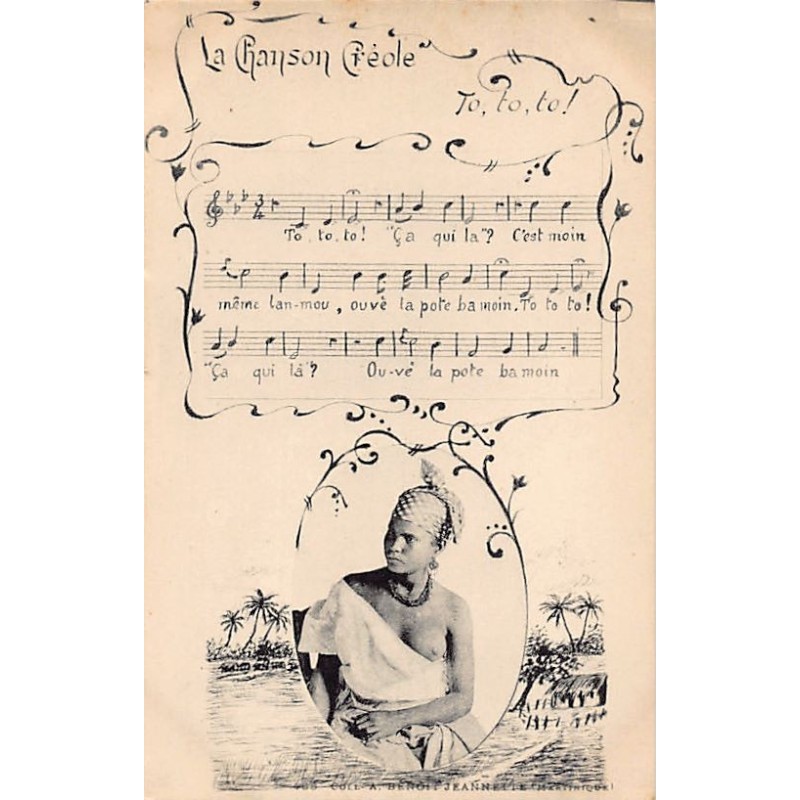 La Chanson Créole
To, to, to!
3
4
To, to, to! "Ça qui la"? C'est moin
même lan-mou, ouvè la pote ba moin. To to to!
"Ça qui là"? Ou-vé la pote ba moin
COLL. A. BENOIT JEANNETTE (MARTINIQUE)